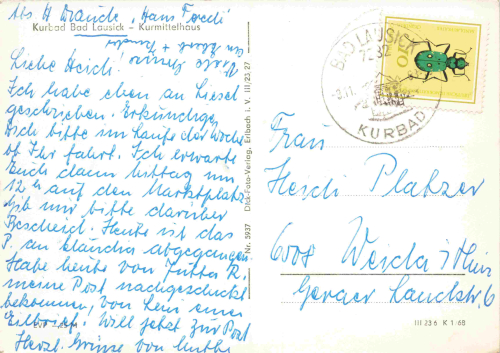 Abs. H
Kurbad Bad Lausick – Kurmittelhaus
Liebe Heidi!
Ich habe eben an Liesel
geschrieben. Erkundige
Dich bitte im Laufe der Woche
ob Ihr fahrt. Ich erwarte
Euch dann
12 h auf dem Marktplatz
Gib mir bitte darüber
Bescheid. Heute ist das
P. an Claudia abgegangen
Habe heute von Jutta R.
meine Post nachgeschickt
bekommen, von
Eilbrief. Will jetzt zur Post
Herzl. Grüsse von Mutti
Dick-Foto-Verlag, Erlbach i. V. III 23 27
Nr. 5937
BAD LAUSICK
7282
KURBAD
10
Frau
Heidi Platzer
6508 Weida / Thür
Geraer Landstr. 6
III 23 6 K 1/68